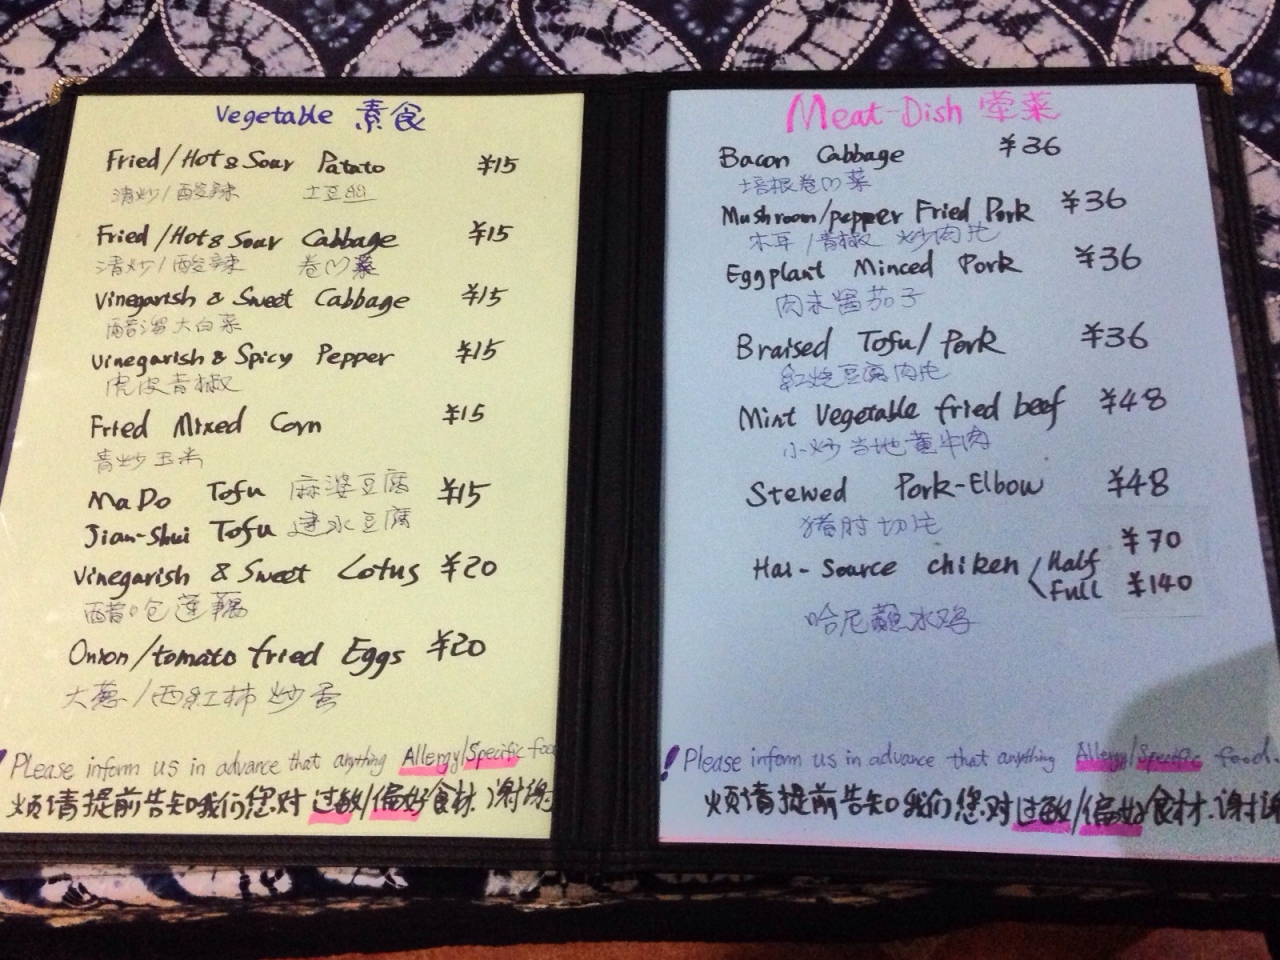 Vegetable 素食
Fried/Hot & Sour Patato ¥15
清炒/酸辣 土豆丝
Fried/Hot & Sour Cabbage ¥15
清炒/酸辣 卷心菜
Vinegarish & Sweet Cabbage ¥15
醋溜大白菜
Vinegarish & Spicy Pepper ¥15
虎皮青椒
Fried Mixed Corn ¥15
青炒玉米
MaDo Tofu 麻婆豆腐 ¥15
Jian-Shui Tofu 建水豆腐
Vinegarish & Sweet Lotus ¥20
醋呛莲藕
Onion/tomato fried Eggs ¥20
大葱/西红柿炒蛋
! Please inform us in advance that anything Allergy/Specific food
烦请提前告知我们您对过敏/偏好食材.谢谢
Meat-Dish 荤菜
Bacon Cabbage ¥36
培根卷心菜
Mushroom/pepper Fried Pork ¥36
木耳/青椒 炒肉片
Eggplant Minced Pork ¥36
肉末酱茄子
Braised Tofu/Pork ¥36
红烧豆腐肉片
Mint Vegetable fried beef ¥48
小炒当地黄牛肉
Stewed Pork-Elbow ¥48
猪肘切片
Hai-Source chiken Half ¥70
Full ¥140
哈尼蘸水鸡
! Please inform us in advance that anything Allergy/Specific food.
烦请提前告知我们您对过敏/偏好食材.谢谢